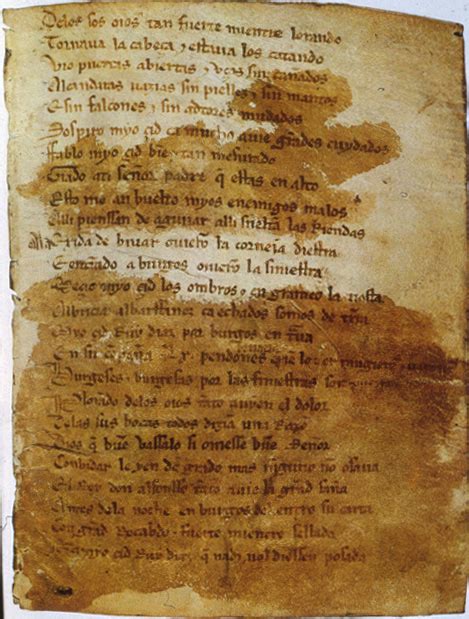 Delos sos oios tan fuerte mientre lorando
Tornaua la cabeça & estaua los catando
Vio puertas abiertas & vços sin cañados
Alcandaras uazias sin pielles & sin mantos
E sin falcones & sin adtores mudados
Sospiro myo çid ca mucho auie grãdes cuydados
Fablo myo çid biẽ & tan mesurado
Grado ati señor padre q̃ estas en alto
Esto me an buelto myos enemigos malos
Alli pienssan de aguijar alli sueltã las Riendas
Ala Exida de biuar ouierõ la corneia diestra
Entrando a burgos ouierõ la siniestra
Meçio myo çid los ombros & en grameo la tiesta
Albricia albarffanez ca echados somos de tr̃ra
Myo çid Ruy diaz por burgos en traua
En su conpaña Lx. pendones lo ver mugieres & uarones
Burgeses & burgesas por las finiestras son
Plorando delos oios tãto auyen el dolor
Delas sus bocas todos dizian una Razo
Dios q̃ buẽ vassalo si ouiesse buẽ Señor
Conbidar le yen de grado mas ninguno no osaua
El Rey don alfonsso tãto auie la grãd saña
Antes dela noche en burgos del entro su carta
Con grãd Recabdo & fuerte mientre sellada
myo çid Ruy diaz q̃ nadi nol diessen posada